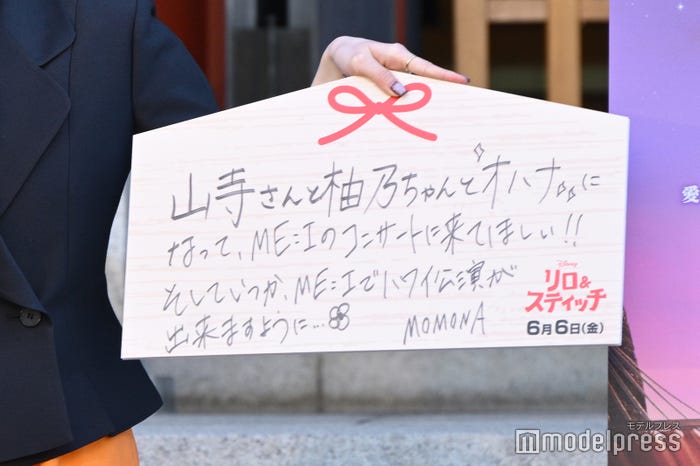 山寺さんと柚乃ちゃんと"オハナ"に
なって、ME:Iのコンサートに来てほしい!!
そしていつか、ME:Iでハワイ公演が
出来ますように…
MOMONA
Disney
リロ&
スティッチ
6月6日(金)
愛
モデルプレス
modelpress